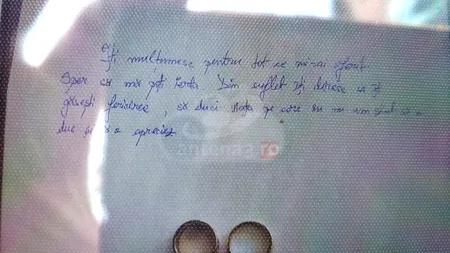 Îți mulțumesc pentru tot ce mi-ai oferit
Sper că mă poți ierta Din suflet îți doresc să îți
găsești fericirea, să duci viața pe care eu nu am știut să o
duc și să o apreciez
antena3.ro